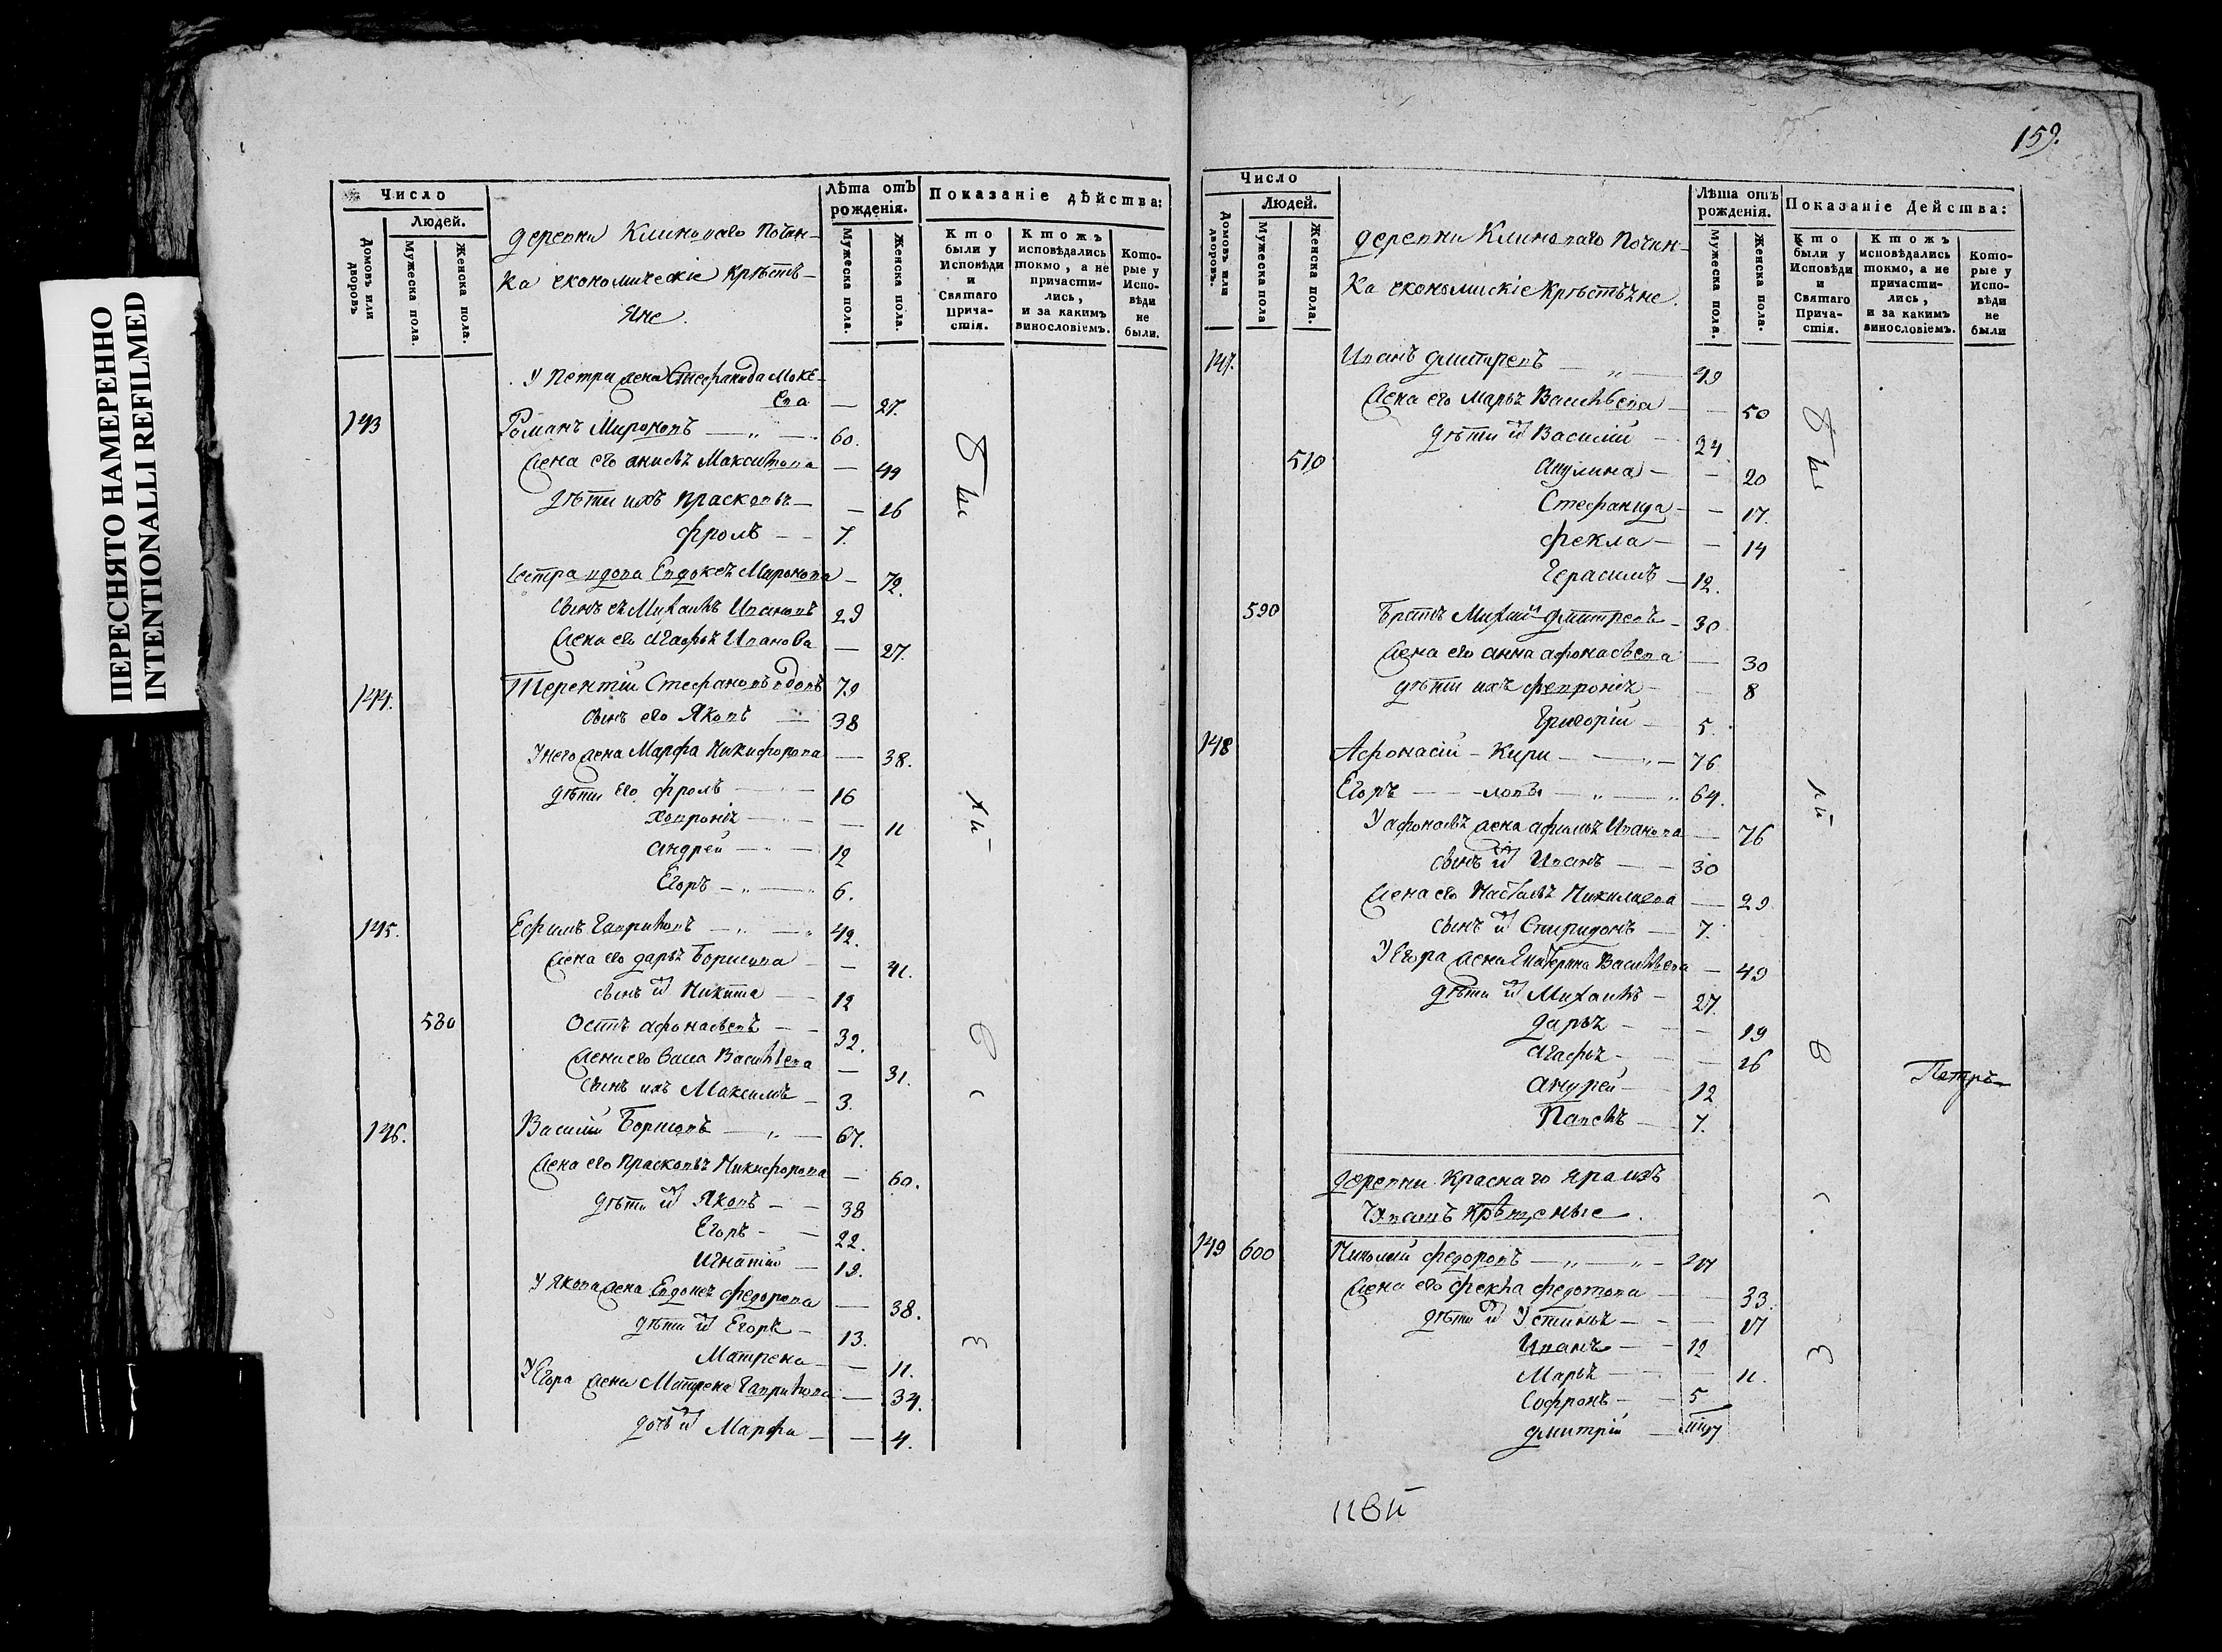 ПЕРЕСНЯТО НАМЕРЕННО
INTENTIONALLI REFILMED
Число
Людей.
Домовъ или дворовъ
Мужеска пола.
Женска пола.
деревни Клиноваго Почин-
ка економическіе крѣстъ-
яне.
Лѣта отъ рожденія.
Мужеска пола.
Женска пола.
Показаніе дѣйства:
Кто были у Исповѣди и Святаго Прича-стія.
Ктожъ исповѣдались токмо, а не причасти-лись, и за какимъ винословіемъ.
Кото-рые у Испо-вѣди не были.
У Петра жена Стефанида Моке-
ева — 27.
143 Романъ Мироновъ — 60.
жена его анисья Максимова — 49
дѣти ихъ Прасковья — 16
фролъ — 7.
Сестра вдова Евдокея Миронова — 72.
сынъ ея Михаилъ Ивановъ 29
жена его Агафья Иванова — 27.
144. Терентій Стефановъ вдовъ 79
сынъ его Яковъ — 38
У него жена Марфа Никифорова — 38.
дѣти его фролъ — 16
Хавронія — 11
андрей — 12
Егоръ — 6.
145. Ефимъ Гавриловъ — 42.
жена его дарья Борисова — 41.
сынъ их Никита — 12
580 Осипъ афонасьевъ — 32.
жена его Васса Васильева — 31.
сынъ ихъ Максимъ — 3.
146. Василій Борисовъ — 67.
жена его Прасковья Никифорова — 60.
дѣти их Яковъ — 38
Егоръ — 22.
Игнатій — 19.
У Якова жена Евдокея федорова — 38.
дѣти их Егоръ — 13.
Матрена — 11.
У Егора жена Матрена Гаврилова — 34.
дочь их Марфа — 4.
159.
Число
Людей.
Домовъ или дворовъ.
Мужеска пола
Женска пола.
деревни Клиноваго Почин-
ка економискіе крѣстьяне.
Лѣта отъ рожденія.
Мужеска пола.
Женска пола.
Показаніе Действа:
Кто были у Исповѣди и Святаго Прича-стія.
Ктожъ исповѣдались токмо, а не причасти-лись, и за какимъ винословіемъ.
Кото-рые у Испо-вѣди не были
147. Иванъ дмитревъ — 49
жена его марья Васильева — 50
дѣти их Василій — 24
510 Акулина — 20
Стефанида — 17.
фекла — 14
Герасимъ — 12.
590 братъ Михайла дмитревъ — 30
жена его анна афонасьева — 30
дѣти ихъ февронія — 8
Григорій — 5.
148 Афонасій — Кири — 76
Егоръ — ловы — 64.
У афонасья жена афимья Иванова — 76
сынъ их Иванъ — 30
жена его Настасья Николаева — 29
сынъ их Спиридонъ — 7.
У Егора жена Екатерина Васильева — 49
дѣти их Михаилъ — 27.
дарья — 19
Агафья — 16
Андрей — 12
Павелъ — 7.
Петръ
деревни Краснаго Яра изъ
Чувашъ крѣщеные.
149 600 Николай федоровъ —
жена его фекла федотова — 33.
дѣти их Устинья — 17
Иванъ — 12
Марья — 11.
Софронъ — 5
дмитрій —